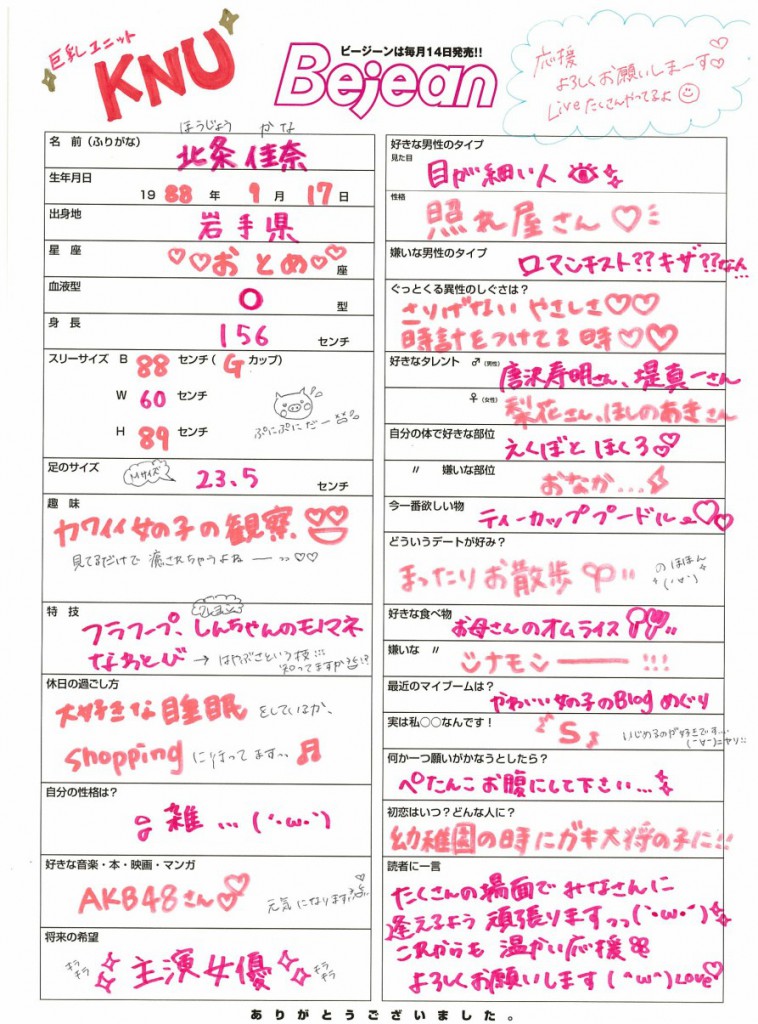 巨乳ユニット
KNU
ビージーンは毎月14日発売!!
Bejean
応援
よろしくお願いしまーす♡
Liveたくさんやってるよ
ほうじょう かな
名 前(ふりがな) 北条 佳奈
生年月日
19 88 年 9 月 17 日
出身地 岩手県
星 座 ♡♡おとめ♡♡ 座
血液型 O 型
身 長 156 センチ
スリーサイズ B 88 センチ( G カップ)
W 60 センチ
H 89 センチ
ぷにぷにだー
足のサイズ Mサイズ 23.5 センチ
趣 味
カワイイ女の子の観察
見てるだけで癒されちゃうよねーっっ♡♡
特 技
フラフープ、しんちゃんのモノマネ
なわとび → はやぶさという技!!!
知ってますか!?
休日の過ごし方
大好きな睡眠をしているか、
shoppingに行ってますっ♫
自分の性格は?
雑…(´・ω・`)
好きな音楽・本・映画・マンガ
AKB48さん♡♡
元気になります
将来の希望
キラキラ 主演女優 キラキラ
好きな男性のタイプ
見た目 目が細い人
性格 照れ屋さん♡
嫌いな男性のタイプ
ロマンチスト??キザ??な人…
ぐっとくる異性のしぐさは?
さりげない やさしさ♡♡
時計をつけてる時♡♡
好きなタレント ♂(男性) 唐沢寿明さん、堤真一さん
♀(女性) 梨花さん、ほしのあきさん
自分の体で好きな部位
えくぼと ほくろ
〃 嫌いな部位
おなか…
今一番欲しい物
ティーカッププードル♡♡
どういうデートが好み?
まったりお散歩
のほほん
好きな食べ物
お母さんのオムライス
嫌いな 〃
シナモンーー!!!
最近のマイブームは?
かわいい女の子のBlogめぐり
実は私○○なんです!
S♪
いじめるのが好きです…
ニヤリ
何か一つ願いがかなうとしたら?
ぺたんこお腹にして下さい…
初恋はいつ?どんな人に?
幼稚園の時にガキ大将の子に!!
読者に一言
たくさんの場面でみなさんに
逢えるよう 頑張りますっっ(`・ω・´)
これからも 温かい応援
よろしくお願いします(^ω^)LOVE♡
ありがとうございました。